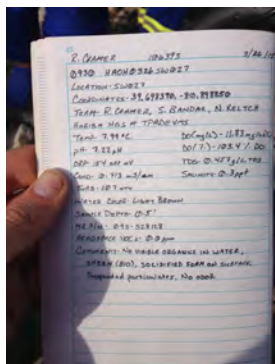 R. CRAMER 106393 3/26/
0930 HAOH0326SW027
LOCATION - SW027
COORDINATES - 39.698390, -80.898850
TEAM - R. CRAMER, S. BANDAR, N. KELTCH
HORIBA
TEMP: 7.99°C DO(mg/L) - 11.83 mg/L
pH - 7.22 pH DO(%) - 103.4 % DO
ORP 154 ORP mV TDS: 0.457 g/L TDS
COND: 0.713 mS/cm SALINITY: 0.3 ppt
TURB: 107 NTU
WATER COLOR: LIGHT BROWN
SAMPLE DEPTH: 0.5'
MR No: 095-
HEADSPACE VOCs: 0.0 ppm
COMMENTS: NO VISIBLE ORGANICS IN WATER,
SHEEN (BIO), SOLIDIFIED FOAM ON SURFACE
Suspended particulates, No ODOR